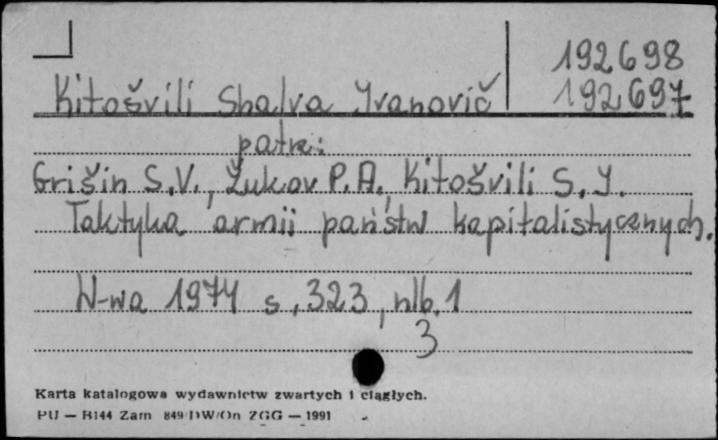 192698
Kitošvili Shalva Ivanovič 192697
patrz:
Grišin S.V., Žukov P.A., Kitošvili S.I.
Taktyka armii państw kapitalistycznych.
W-wa 1974 s. 323, nlb. 1
3
Karta katalogowa wydawnictw zwartych i ciągłych.
PU — B144 Zam 849/DW/On ZGG — 1991